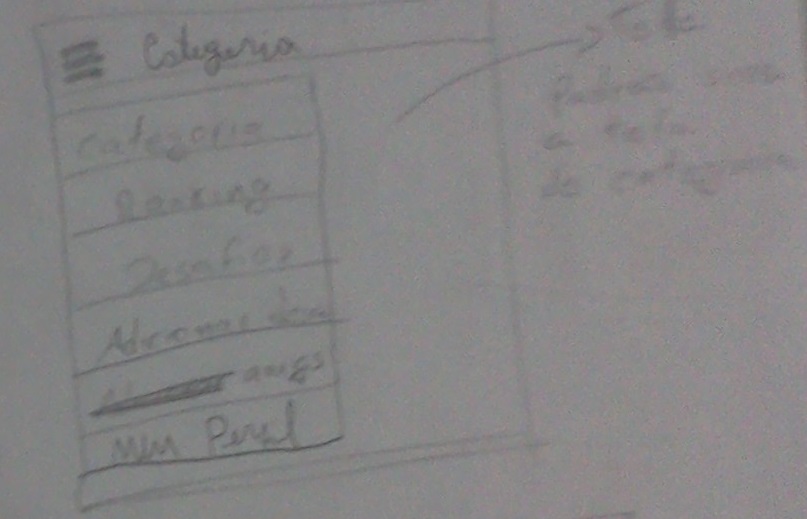 Categoria
Categoria
Ranking
Desafios
Adicionar
amigs
Meu Perfil
Tela
Padrão
a tela
de categoria